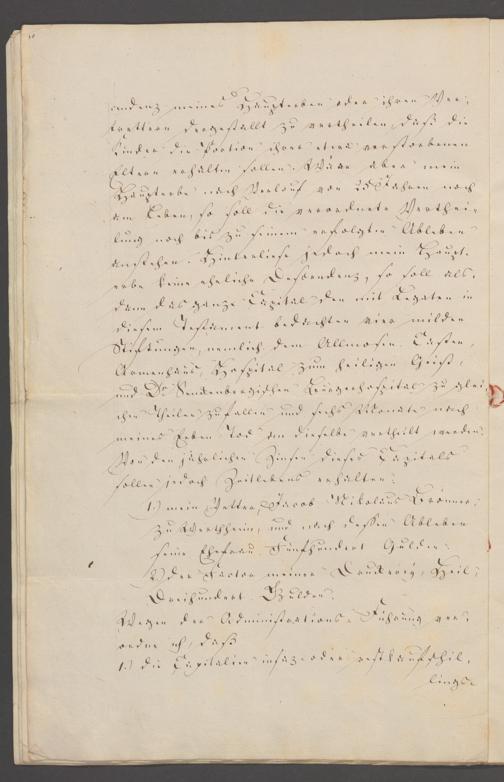 cendenz meines Haupterben oder ihren Ver-
trettern dergestallt zu vertheilen, daß die
Kinder die Portion ihrer etwa verstorbenen
Eltern erhalten sollen. Wäre aber mein
Haupterbe nach Verlauf von 25 Jahren noch
am Leben, so soll die verordnete Verthei-
lung noch bis zu seinem erfolgten Ableben
anstehen. Hinterliese jedoch mein Haupt-
erbe keine eheliche Descendenz, so soll als-
dann das ganze Capital den mit Legaten in
diesem Testament bedachten vier milden
Stiftungen, nemlich dem Allmosen-Casten,
Armenhaus, Hospital zum heiligen Geist,
und Dr. Senckenbergischen Bürgerhospital zu glei-
chen Theilen zufallen und sechs Monate nach
meines Erben Tod an dieselbe vertheilt werden.
Von den jährlichen Zinsen dieses Capitals
sollen jedoch Zeitlebens erhalten:
1.) mein Vetter, Jacob Nikolaus
zu Wertheim, und nach dessen Ableben
seine Ehefrau Fünfhundert Gulden.
2.) der Factor meiner Druckerey, Heil:
Dreihundert Gulden.
Wegen der Administrations-Führung ver-
ordne ich, daß
1.) die Capitalien insaz- oder restkaufschil-
linge